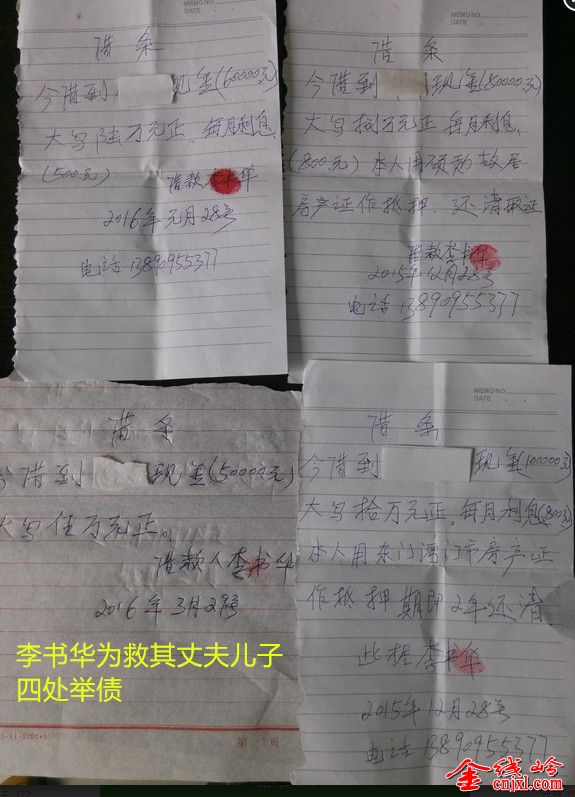 MEMO NO
DATE
借条
今借到 现金(60000元)
大写陆万元正,每月利息
(500元)
借款李书华
2016年元月28号
电话13890955377
MEMO NO
DATE
借条
今借到 现金(80000元)
大写捌万元正,每月利息
(800元)本人用 故居
房产证作抵押、还清取证
借款李书华
2015年12月28号
电话13890955377
借条
今借到 现金(50000元)
大写伍万元正。
借款人李书华
2016年3月29号
第 页
MEMO NO
DATE
借条
今借到 现金(100000元)
大写拾万元正。每月利息(800元)
本人用东门 门市房产证
作抵押 期即2年还清
此据李书华
2015年12月28号
电话13890955377
李书华为救其丈夫儿子
四处举债
金线岭
cnjxl.com